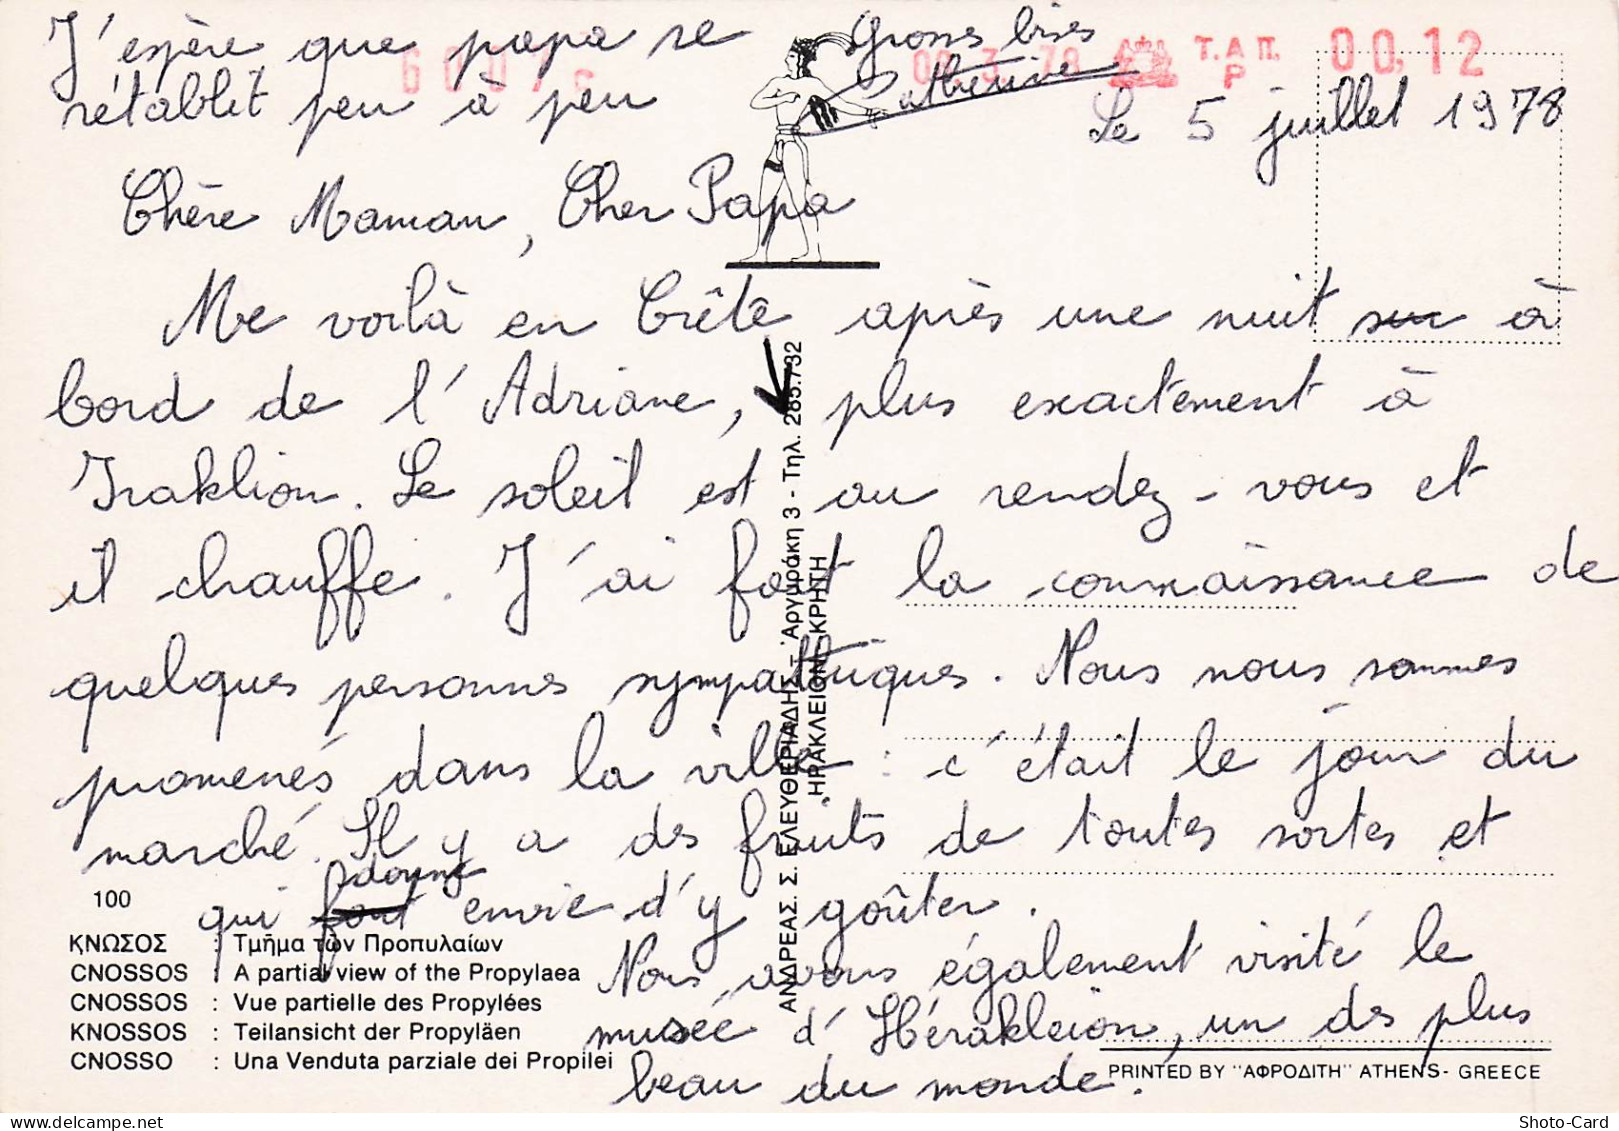 J'espère que papa se
rétablit peu à peu
Grosses bises
Catherine
Τ.Α.Π.
Ρ
00,12
Le 5 juillet 1978
Chère Maman, Cher Papa
Me voilà en Crète après une nuit sur à
bord de l'Adriane, plus exactement à
Iraklion. Le soleil est au rendez-vous et
il chauffe. J'ai fait la connaissance de
quelques personnes sympathiques. Nous nous sommes
promenés dans la ville : c'était le jour du
marché. Il y a des fruits de toutes sortes et
qui font donne envie d'y goûter.
Nous avons également visité le
musée d'Hérakleion, un des plus
beau du monde.
100
ΚΝΩΣΟΣ : Τμῆμα τῶν Προπυλαίων
CNOSSOS : A partial view of the Propylaea
CNOSSOS : Vue partielle des Propylées
KNOSSOS : Teilansicht der Propyläen
CNOSSO : Una Venduta parziale dei Propilei
ΑΝΔΡΕΑΣ. Σ. ΕΛΕΥΘΕΡΙΑΔΗΣ - Ἀργυράκη 3 - Τηλ. 285.732
ΗΡΑΚΛΕΙΟΝ - ΚΡΗΤΗ
PRINTED BY "ΑΦΡΟΔΙΤΗ" ATHENS - GREECE
Shoto-Card